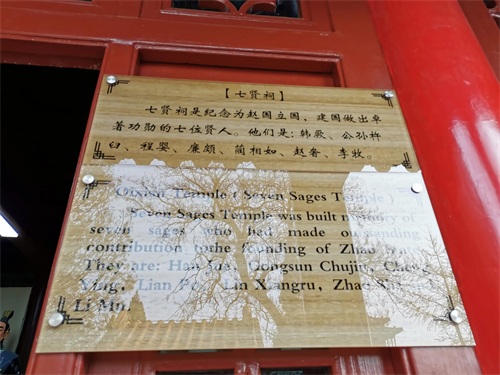 【七贤祠】
七贤祠是纪念为赵国立国，建国做出卓
著功勋的七位贤人。他们是：韩厥、公孙杵
臼、程婴、廉颇、蔺相如、赵奢、李牧。
Qixian Temple ( Seven Sages Temple )
Seven Sages Temple was built memory of
seven sages who had made outstanding
contribution to the founding of Zhao
They are: Han Jue, Gongsun Chujiu, Cheng
Ying, Lian Lin Xiangru, Zhao
Li Mu.